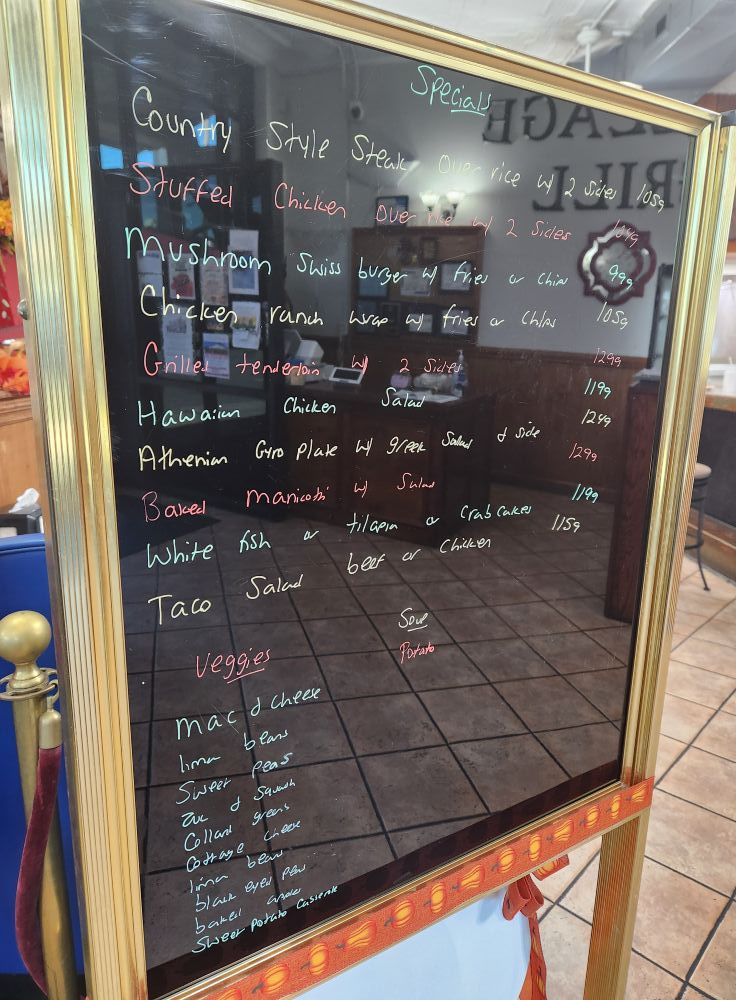 Specials
Country Style Steak over rice w/ 2 sides 1059
Stuffed Chicken over rice w/ 2 Sides 1049
Mushroom Swiss burger w/ fries or chips 999
Chicken ranch wrap w/ fries or chips 1059
Grilled tenderloin w/ 2 sides 1299
Hawaiian Chicken Salad 1199
Athenian Gyro Plate w/ greek Salad & side 1249
Baked manicotti w/ Salad 1299
White fish or tilapia or crab cakes 1199
Taco Salad beef or Chicken 1159
Soup
Potato
Veggies
Mac & cheese
lima beans
Sweet peas
zuc & Squash
Collard greens
Cottage cheese
lima beans
black eyed peas
baked apples
Sweet Potato Casserole
LLAGE
GRILL